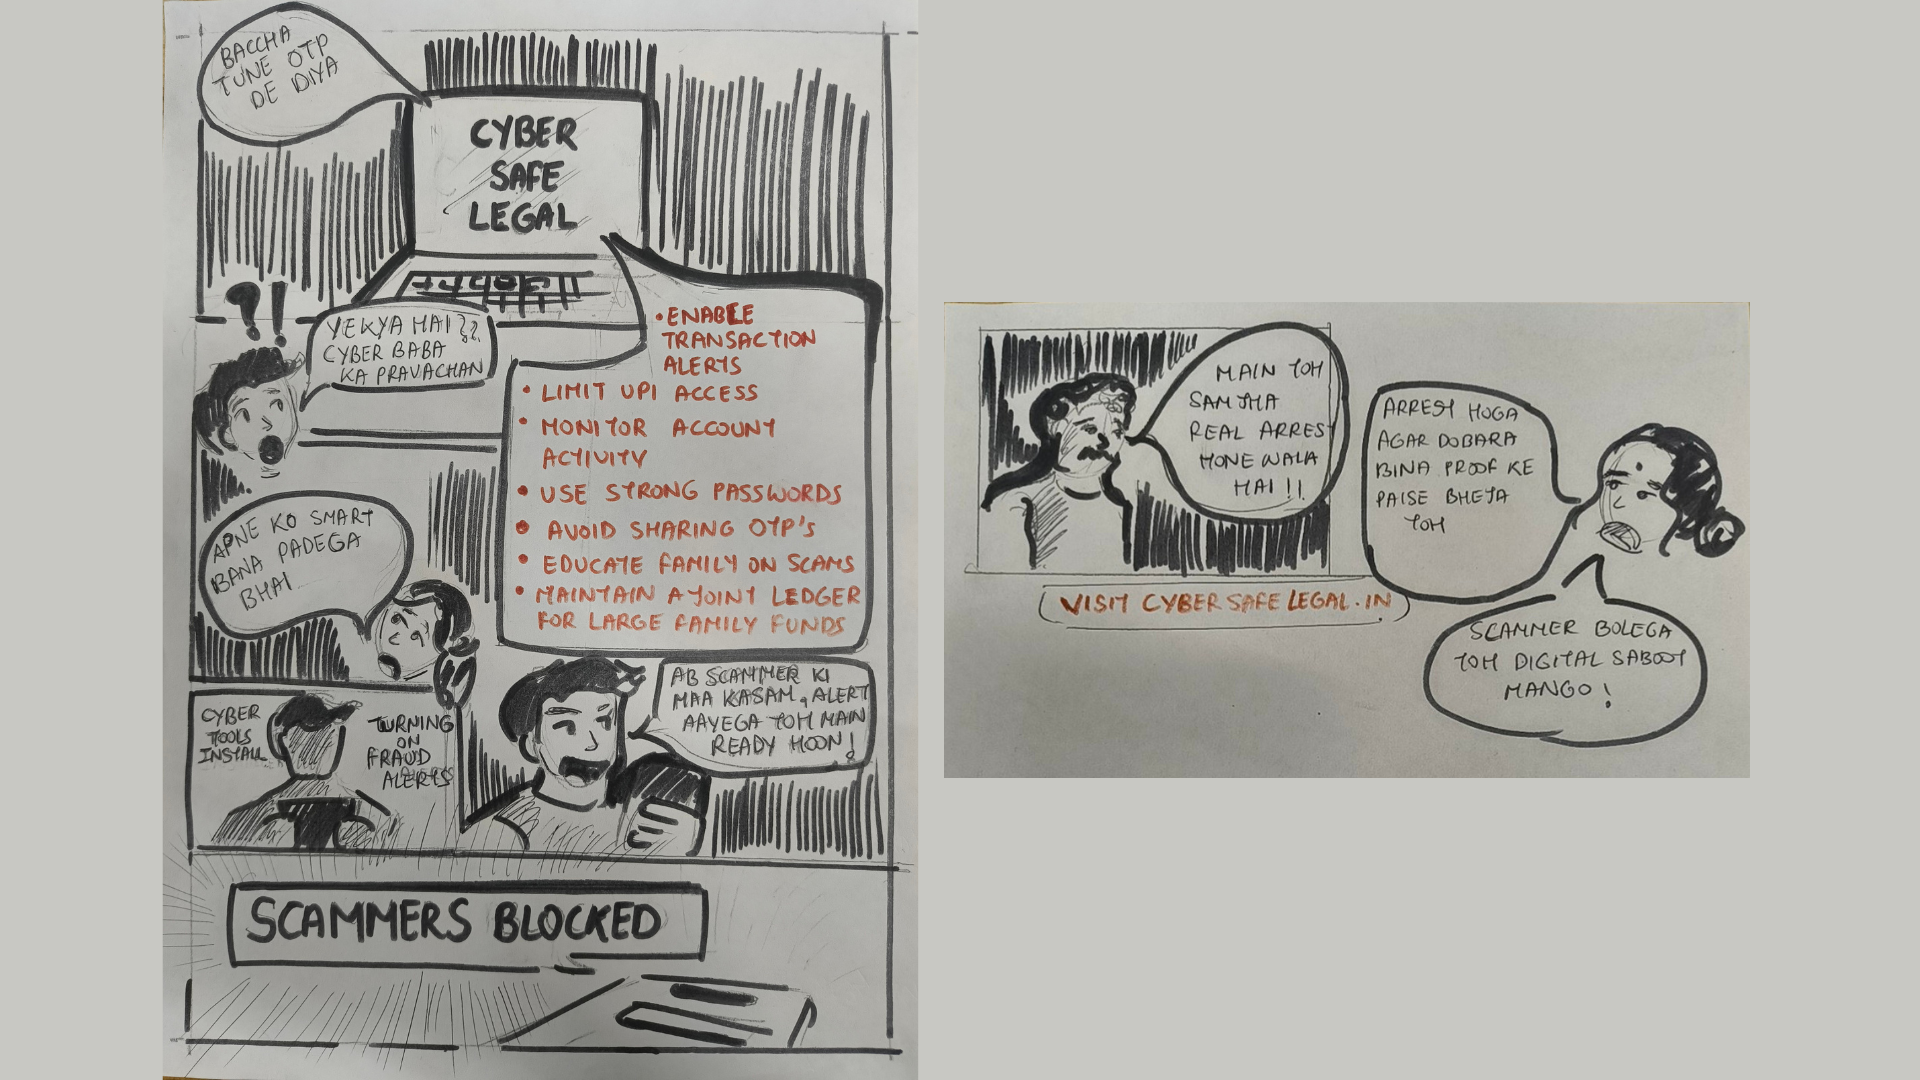 BACCHA
TUNE OTP
DE DIYA
CYBER
SAFE
LEGAL
?!
YE KYA HAI ??
CYBER BABA
KA PRAVACHAN
• ENABLE
TRANSACTION
ALERTS
• LIMIT UPI ACCESS
• MONITOR ACCOUNT
ACTIVITY
• USE STRONG PASSWORDS
• AVOID SHARING OTP'S
• EDUCATE FAMILY ON SCAMS
• MAINTAIN A JOINT LEDGER
FOR LARGE FAMILY FUNDS
APNE KO SMART
BANA PADEGA
BHAI
CYBER
TOOLS
INSTALL
TURNING
ON
FRAUD
ALERTS
AB SCAMMER KI
MAA KASAM, ALERT
AAYEGA TOH MAIN
READY HOON!
SCAMMERS BLOCKED
MAIN TOH
SAMJHA
REAL ARREST
HONE WALA
HAI !!
ARREST HOGA
AGAR DOBARA
BINA PROOF KE
PAISE BHEJA
TOH
VISIT CYBERSAFELEGAL.IN
SCAMMER BOLEGA
TOH DIGITAL SABOOT
MANGO!